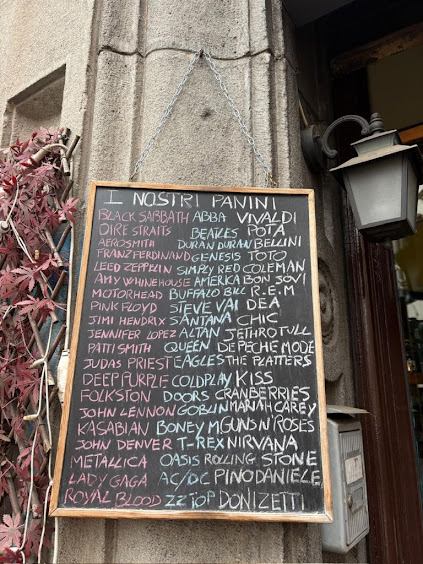 I NOSTRI PANINI
BLACK SABBATH ABBA VIVALDI
DIRE STRAITS BEATLES POTA
AEROSMITH DURAN DURAN BELLINI
FRANZ FERDINAND GENESIS TOTO
LEED ZEPPELIN SIMPLY RED COLEMAN
AMY WHINEHOUSE AMERICA BON JOVI
MOTORHEAD BUFFALO BILL R.E.M
PINK FLOYD STEVE VAI DEA
JIMI HENDRIX SANTANA CHIC
JENNIFER LOPEZ ALTAN JETHROTULL
PATTI SMITH QUEEN DEPECHE MODE
JUDAS PRIEST EAGLES THE PLATTERS
DEEP PURPLE COLDPLAY KISS
FOLKSTON DOORS CRANBERRIES
JOHN LENNON GOBLIN MARIAH CAREY
KASABIAN BONEY M. GUNS N' ROSES
JOHN DENVER T-REX NIRVANA
METALLICA OASIS ROLLING STONE
LADY GAGA AC/DC PINO DANIELE
ROYAL BLOOD ZZ TOP DONIZETTI